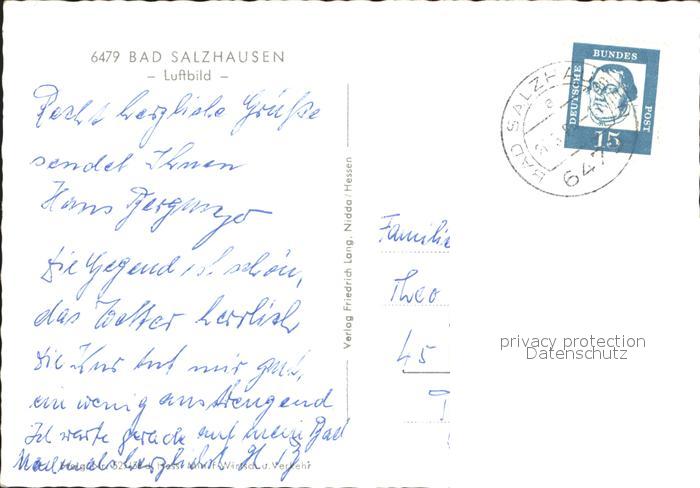 6479 BAD SALZHAUSEN
– Luftbild –
Recht herzliche Grüße
sendet Ihnen
Hans
Die Gegend ist schön,
das Wetter herrlich
die Kur tut mir gut,
ein wenig anstrengend
Ich warte gerade auf mein Bad
Nochmals herzlichst H.
Verlag Friedrich Lang, Nidda/Hessen
DEUTSCHE
BUNDES
POST
15
BAD SALZHA
647
Familie
Theo
45
privacy protection
Datenschutz